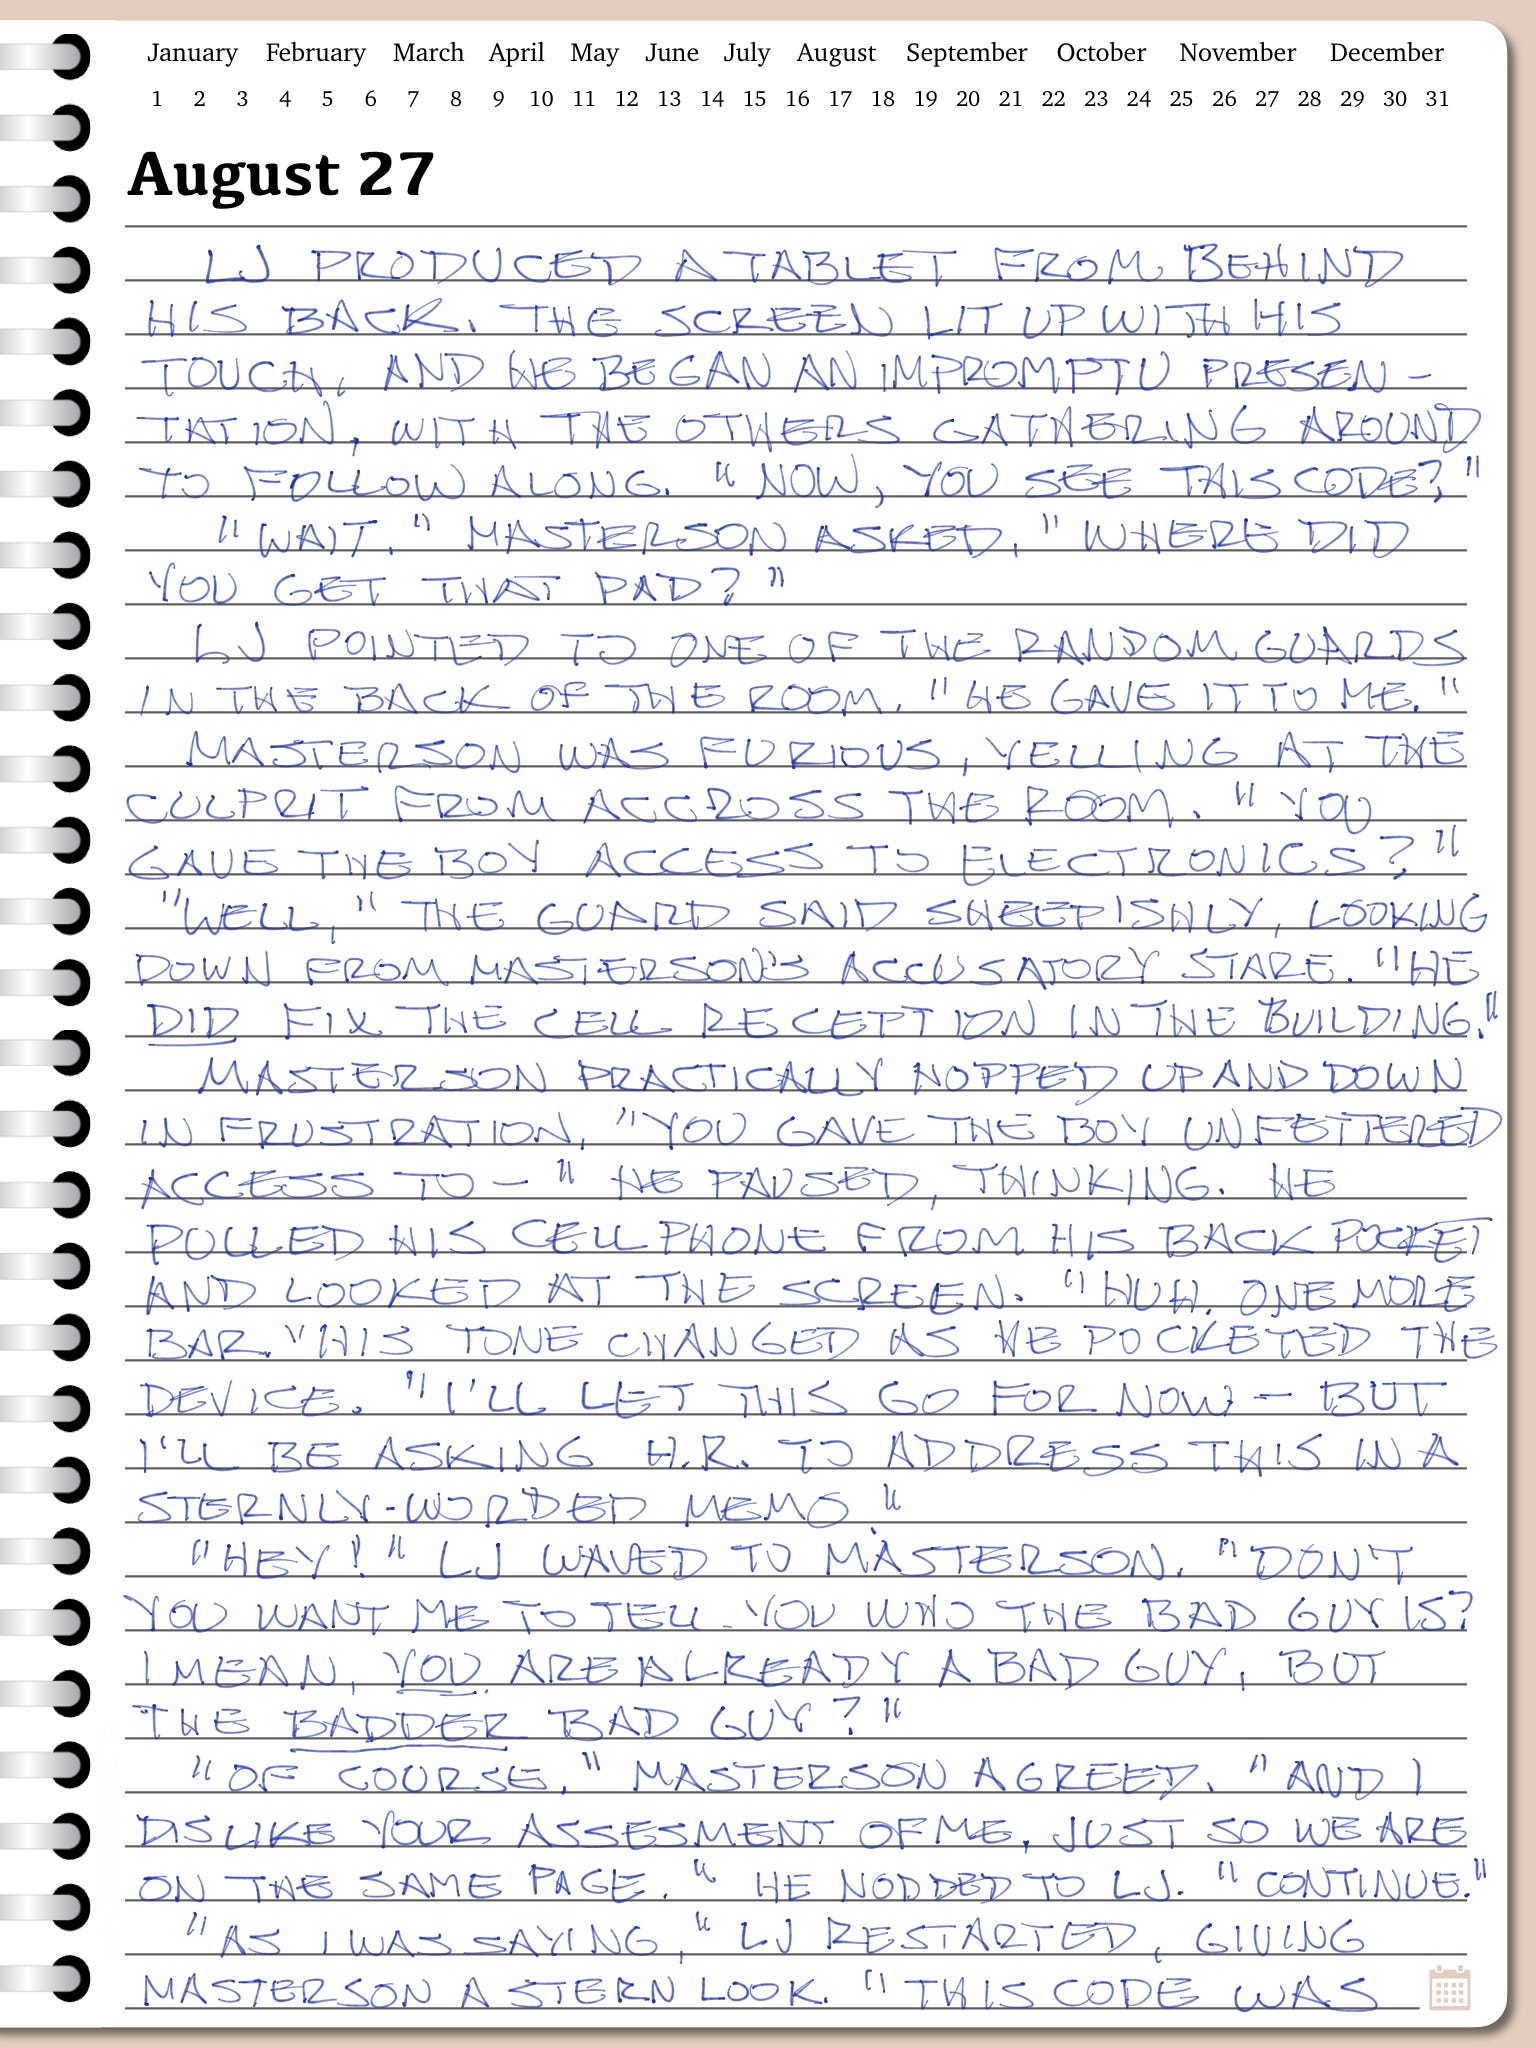 January February March April May June July August September October November December
1 2 3 4 5 6 7 8 9 10 11 12 13 14 15 16 17 18 19 20 21 22 23 24 25 26 27 28 29 30 31
August 27
LJ PRODUCED A TABLET FROM BEHIND
HIS BACK. THE SCREEN LIT UP WITH HIS
TOUCH, AND HE BEGAN AN IMPROMPTU PRESEN-
TATION, WITH THE OTHERS GATHERING AROUND
TO FOLLOW ALONG. "NOW, YOU SEE THIS CODE?"
"WAIT." MASTERSON ASKED. "WHERE DID
YOU GET THAT PAD?"
LJ POINTED TO ONE OF THE RANDOM GUARDS
IN THE BACK OF THE ROOM. "HE GAVE IT TO ME."
MASTERSON WAS FURIOUS, YELLING AT THE
CULPRIT FROM ACCROSS THE ROOM. "YOU
GAVE THE BOY ACCESS TO ELECTRONICS?"
"WELL," THE GUARD SAID SHEEPISHLY, LOOKING
DOWN FROM MASTERSON'S ACCUSATORY STARE. "HE
DID FIX THE CELL RECEPTION IN THE BUILDING."
MASTERSON PRACTICALLY HOPPED UP AND DOWN
IN FRUSTRATION. "YOU GAVE THE BOY UNFETTERED
ACCESS TO-" HE PAUSED, THINKING. HE
PULLED HIS CELL PHONE FROM HIS BACK POCKET
AND LOOKED AT THE SCREEN. "HUH. ONE MORE
BAR." HIS TONE CHANGED AS HE POCKETED THE
DEVICE. "I'LL LET THIS GO FOR NOW - BUT
I'LL BE ASKING H.R. TO ADDRESS THIS IN A
STERNLY-WORDED MEMO."
"HEY!" LJ WAVED TO MASTERSON. "DON'T
YOU WANT ME TO TELL YOU WHO THE BAD GUY IS?
I MEAN, YOU ARE ALREADY A BAD GUY, BUT
THE BADDER BAD GUY?"
"OF COURSE," MASTERSON AGREED. "AND I
DISLIKE YOUR ASSESMENT OF ME, JUST SO WE ARE
ON THE SAME PAGE." HE NODDED TO LJ. "CONTINUE."
"AS I WAS SAYING," LJ RESTARTED, GIVING
MASTERSON A STERN LOOK. "THIS CODE WAS